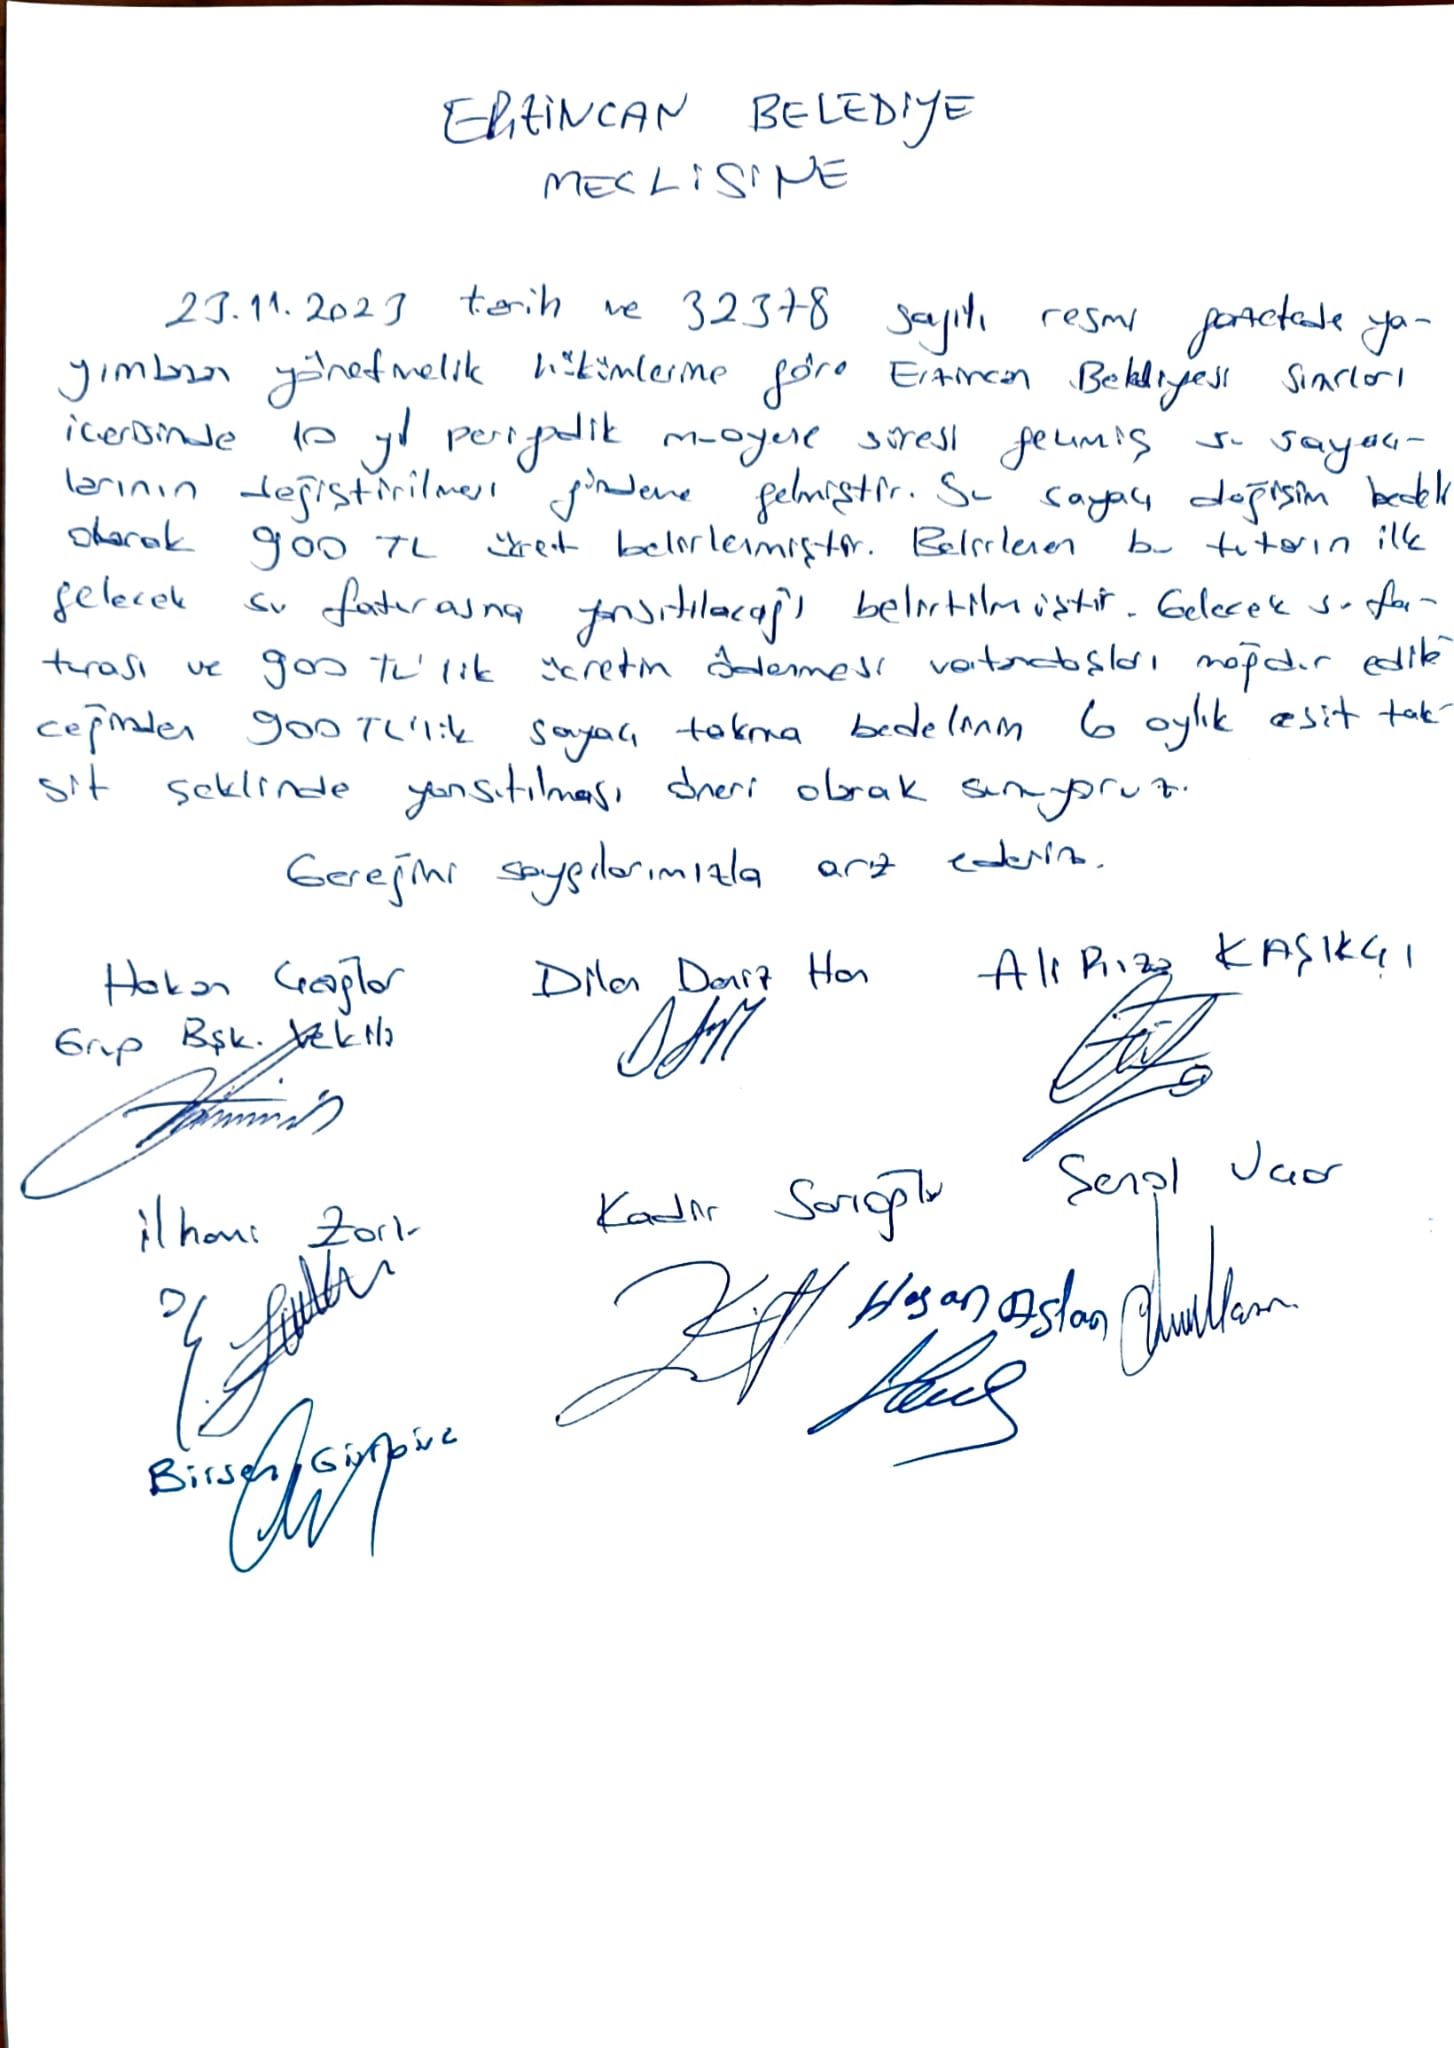 ERZİNCAN BELEDİYE
MECLİSİNE
23.11.2023 tarih ve 32378 sayılı resmi gazetede ya-
yımlanan yönetmelik hükümlerine göre Erzincan Belediyesi sınırları
içerisinde 10 yıl periyodik muayene süresi gelmiş su sayaç-
larının değiştirilmesi gündeme gelmiştir. Su sayaçı değişim bedeli
olarak 900 TL ücret belirlenmiştir. Belirlenen bu tutarın ilk
gelecek su faturasına yansıtılacağı belirtilmiştir. Gelecek su fa-
turası ve 900 TL'lik ücretin ödenmesi vatandaşları mağdur edile
ceğinden 900 TL'lik sayaç takma bedelinin 6 aylık eşit tak-
sit şeklinde yansıtılması öneri olarak sunuyoruz.
Gereğini saygılarımızla arz ederiz.
Hakan Dilan Deniz Han Ali Rıza KAŞIKÇI
Grup Bşk. Vekili
İlhami Zorlu Kadir Sarıoğlu Şenol Uçar
Hasan Aslan
Birsen